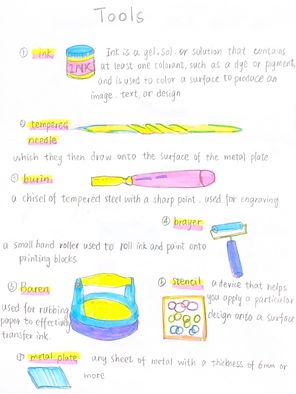 Tools
① ink
INK
Ink is a gel, sol, or solution that contains
at least one colorant, such as a dye or pigment,
and is used to color a surface to produce an
image, text, or design
② tempered
needle
whish they then draw onto the surface of the metal plate
③ burin
a chisel of tempered steel with a sharp point, used for engraving
④ brayer
a small hand roller used to roll ink and paint onto
printing blocks
⑤ Baren
used for rubbing
paper to effecting
transfer ink.
⑥ stencil a device that helps
you apply a particular
design onto a surface
⑦ metal plate any sheet of metal with a thickness of 6mm or
more